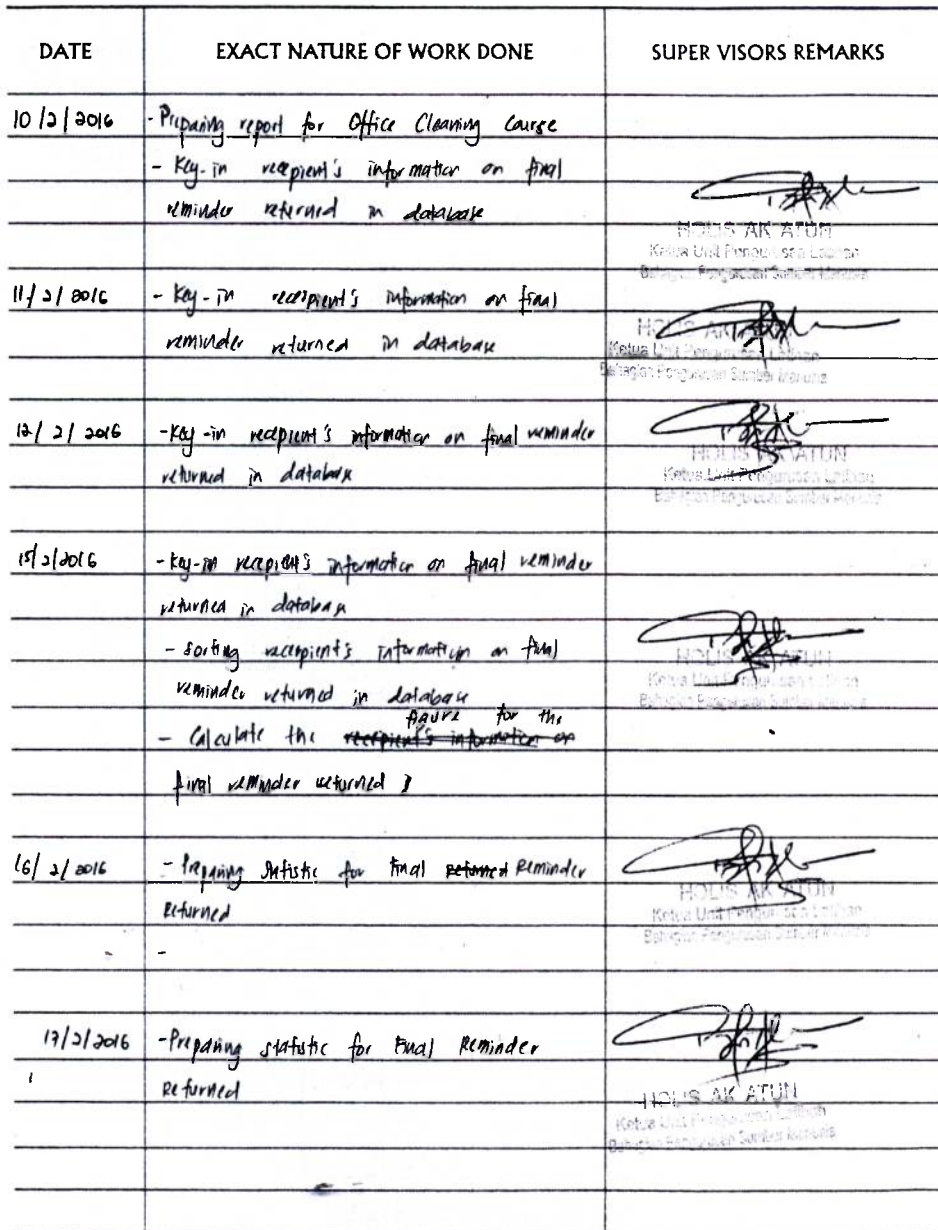 DATE EXACT NATURE OF WORK DONE SUPER VISORS REMARKS
10/2/2016 - Preparing report for Office Cleaning Course
- Key-in recepient's information on final
reminder returned in database
HOLIS AK ATUN
Ketua Unit Pengurusan Latihan
Bahagian Pengurusan Sumber Manusia
11/2/2016 - Key-in recepient's information on final
reminder returned in database
HOLIS AK ATUN
Ketua Unit Pengurusan Latihan
Bahagian Pengurusan Sumber Manusia
12/2/2016 - Key-in recepient's information on final reminder
returned in database
HOLIS AK ATUN
Ketua Unit Pengurusan Latihan
Bahagian Pengurusan Sumber Manusia
15/2/2016 - Key-in recepient's information on final reminder
returned in database
- Sorting recepient's information on final
reminder returned in database
figure for the
- Calculate the recepient's information on
final reminder returned
HOLIS AK ATUN
Ketua Unit Pengurusan Latihan
Bahagian Pengurusan Sumber Manusia
16/2/2016 - Preparing Statistic for Final returned Reminder
Returned
-
HOLIS AK ATUN
Ketua Unit Pengurusan Latihan
Bahagian Pengurusan Sumber Manusia
17/2/2016 - Preparing statistic for Final Reminder
Returned
HOLIS AK ATUN
Ketua Unit Pengurusan Latihan
Bahagian Pengurusan Sumber Manusia